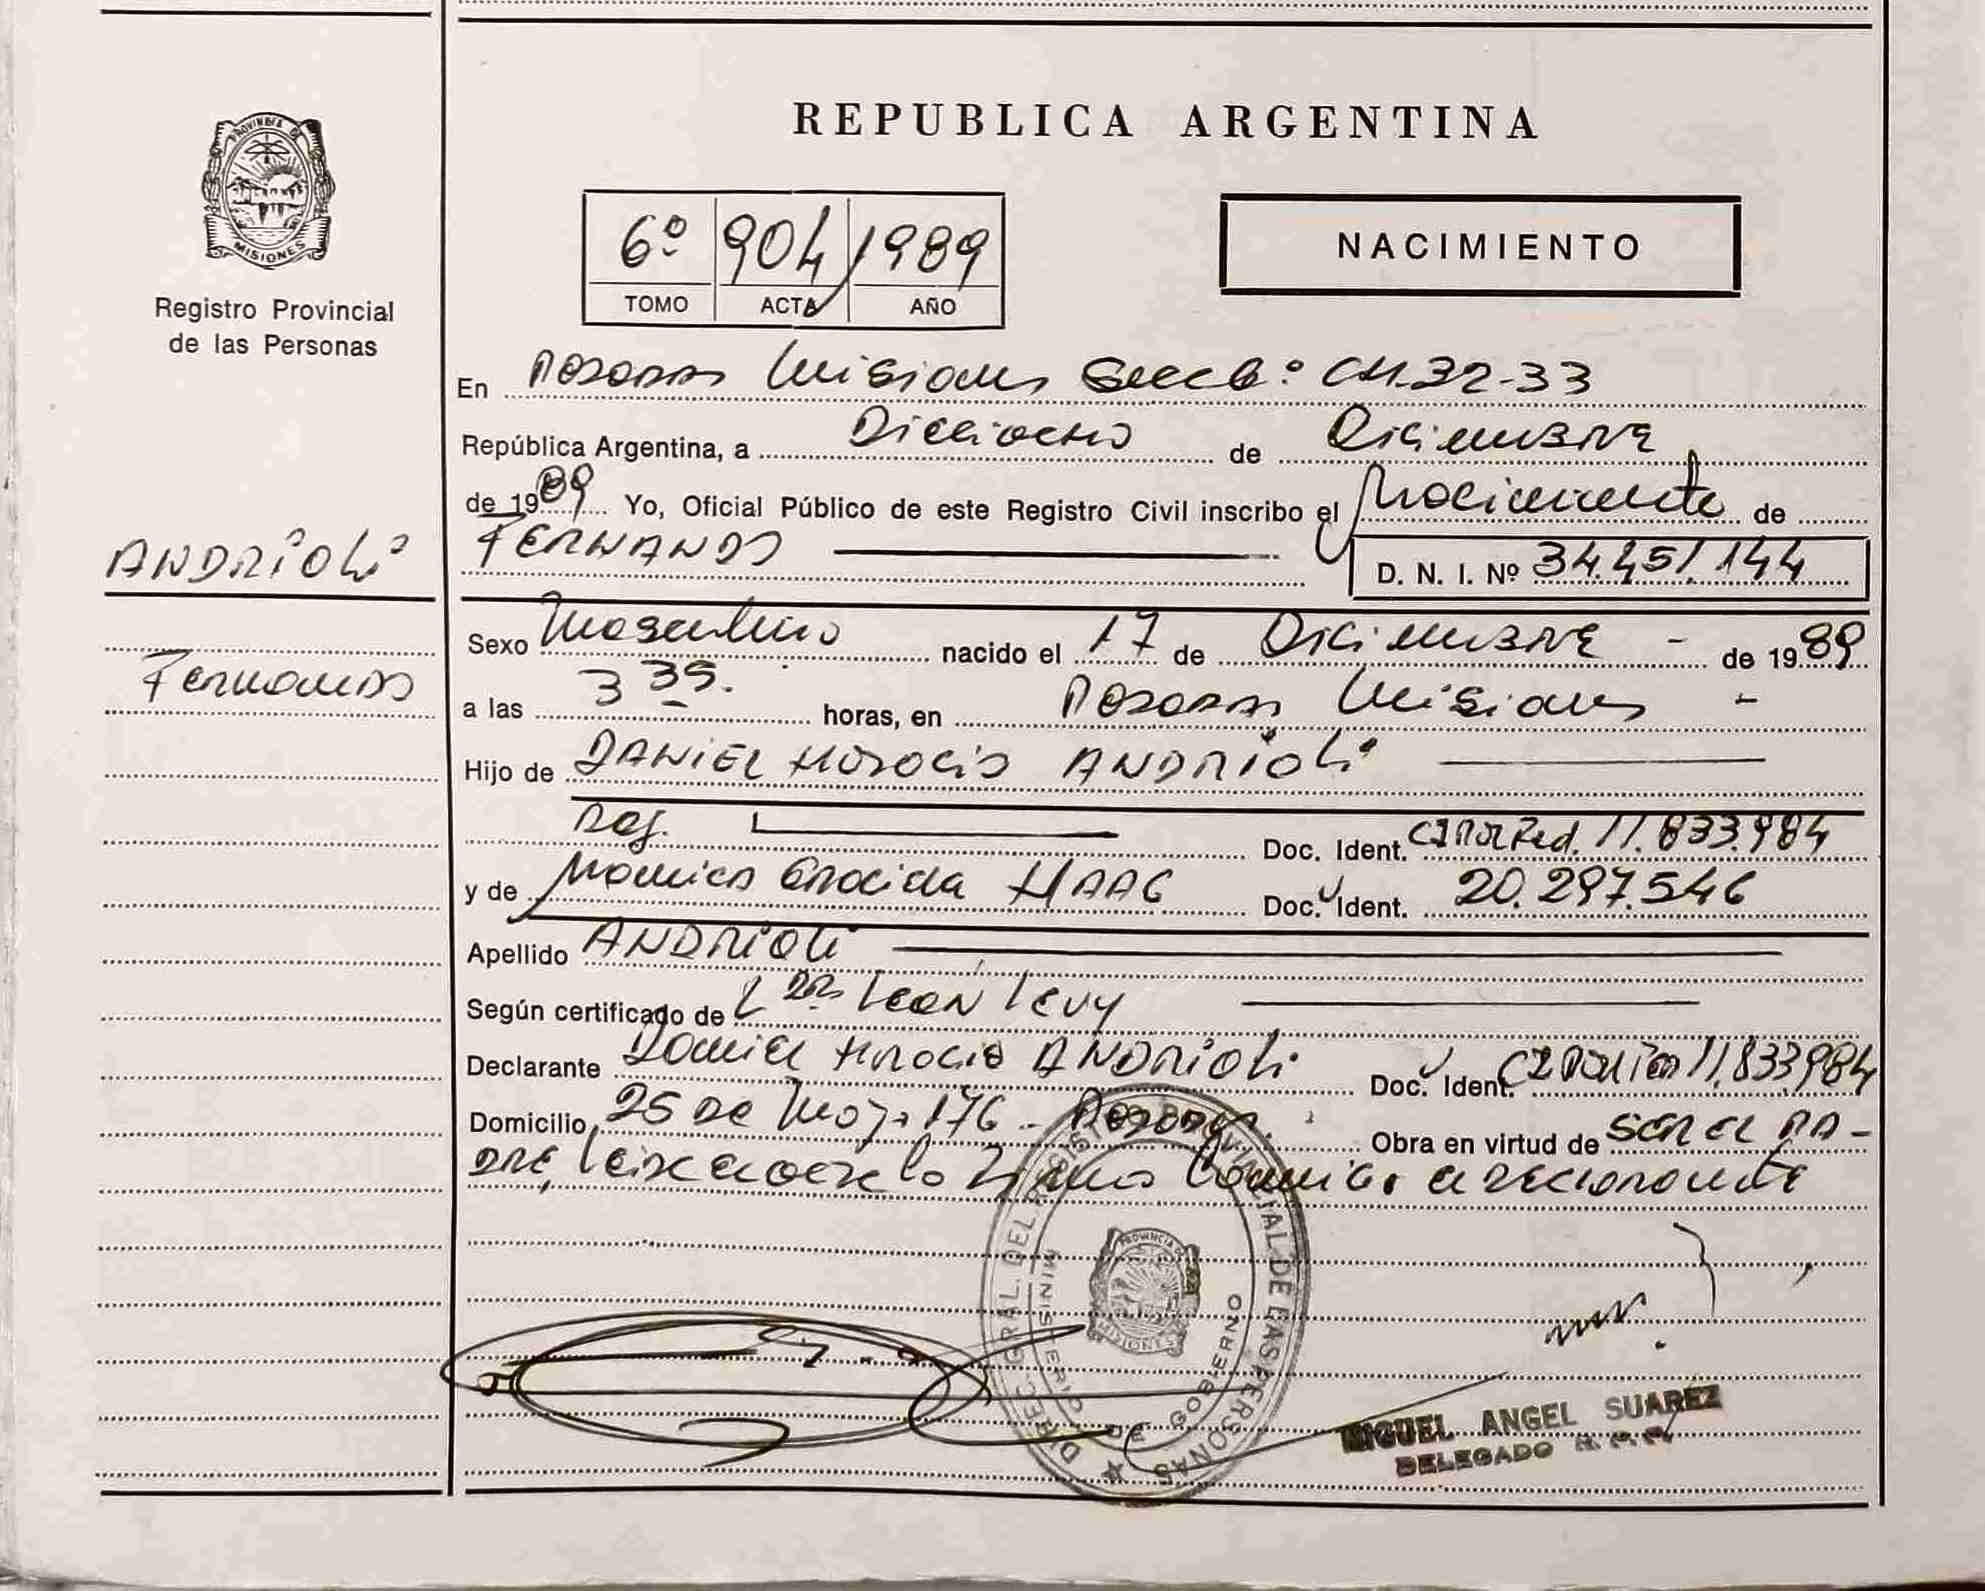 REPUBLICA ARGENTINA
PROVINCIA DE MISIONES
Registro Provincial
de las Personas
6º 904 1989
TOMO ACTA AÑO
NACIMIENTO
En Posadas Misiones Secc 6º CH.32-33
República Argentina, a Dieciocho de Diciembre
de 1989 Yo, Oficial Público de este Registro Civil inscribo el Nacimiento de
ANDRIOLI
FERNANDO
D. N. I. Nº 34.451.144
Fernando
Sexo Masculino nacido el 17 de Diciembre - de 1989
a las 3 35. horas, en Posadas Misiones -
Hijo de DANIEL HORACIO ANDRIOLI
Doc. Ident. 11.833.984
y de Monica Graciela HAAG Doc. Ident. 20.297.546
Apellido ANDRIOLI
Según certificado de Leon Levy
Declarante Daniel Horacio ANDRIOLI Doc. Ident. 11.833.984
Domicilio 25 De Mayo 176 - Posadas. Obra en virtud de SER EL PA-
DRE, Leida el acta la firma Conmigo el declarante
DIREC. GRAL. DEL REGISTRO PROVINCIAL DE LAS PERSONAS
MINISTERIO DE GOBIERNO
PROVINCIA DE MISIONES
MIGUEL ANGEL SUAREZ
DELEGADO